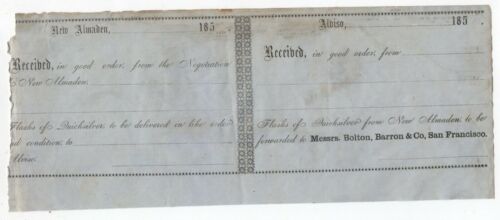 New Almaden, 185
Received, in good order, from the Negotiation
New Almaden.
Flasks of Quicksilver, to be delivered in like order
d condition, to
Alviso.
Alviso, 185
Received, in good order, from
Flasks of Quicksilver from New Almaden, to be
forwarded to Messrs. Bolton, Barron & Co, San Francisco.